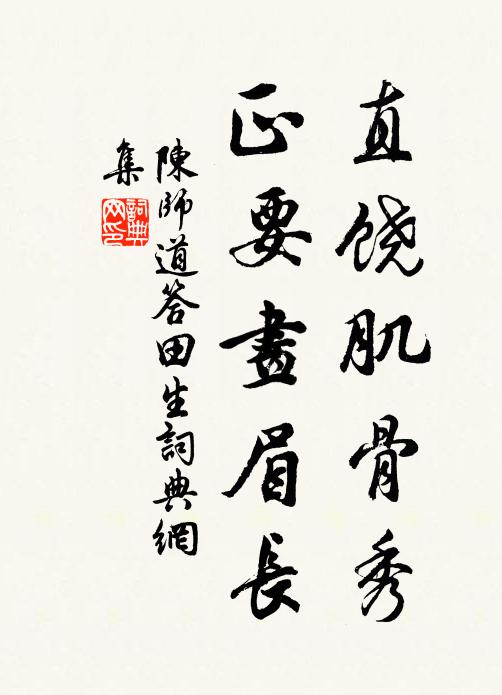 直饶肌骨秀
正要畫眉長
陳師道答田生詞典網
集
詞典网印